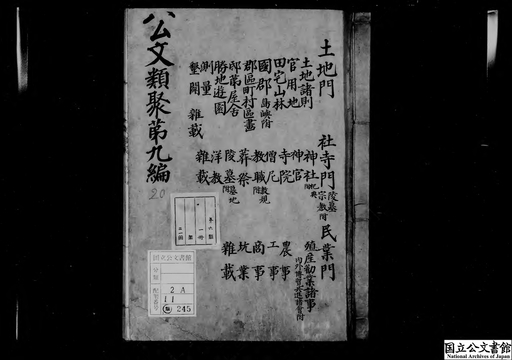 公文類聚第九編
土地門
土地諸則
官用地
田宅山林
國郡 島嶼附
郡區町村區畫
邸第屋舎
勝地遊園
測量
墾闢
雜載
社寺門 陵墓宗教附
神社
神官
寺院
僧尼
教職 教規附
葬祭
陵墓 墓地附
洋教
雜載
民業門
殖産勸業諸事
農事
工事
商事
坑業
雜載
20
国立公文書館
分類
2A
11
245
国立公文書館
National Archives of Japan